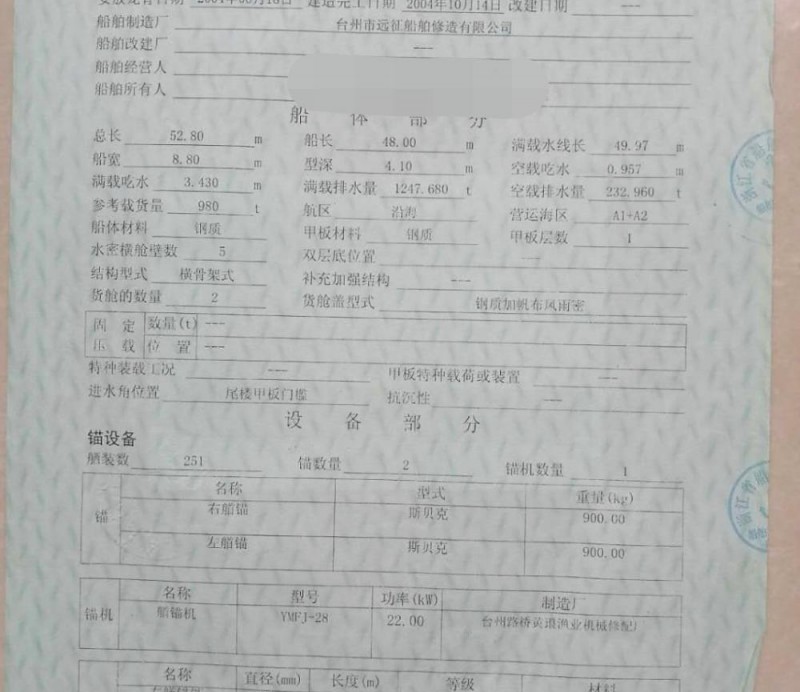 安放龙骨日期 2004年06月18日 建造完工日期 2004年10月14日 改建日期 ---
船舶制造厂 台州市远征船舶修造有限公司
船舶改建厂 ---
船舶经营人
船舶所有人
船 体 部 分
总长 52.80 m 船长 48.00 m 满载水线长 49.97 m
船宽 8.80 m 型深 4.10 m 空载吃水 0.957 m
满载吃水 3.430 m 满载排水量 1247.680 t 空载排水量 232.960 t
参考载货量 980 t 航区 沿海 营运海区 A1+A2
船体材料 钢质 甲板材料 钢质 甲板层数 1
水密横舱壁数 5 双层底位置 ---
结构型式 横骨架式 补充加强结构 ---
货舱的数量 2 货舱盖型式 钢质加帆布风雨密
固 定 数量(t) ---
压 载 位 置 ---
特种装载工况 --- 甲板特种载荷或装置 ---
进水角位置 尾楼甲板门槛 抗沉性 ---
设 备 部 分
锚设备
舾装数 251 锚数量 2 锚机数量 1
锚 名称 型式 重量(kg)
右艏锚 斯贝克 900.00
左艏锚 斯贝克 900.00
锚机 名称 型号 功率(kW) 制造厂
艏锚机 YMFJ-28 22.00 台州路桥黄琅渔业机械修配厂
名称 直径(mm) 长度(m) 等级 材料
浙江省
浙江省